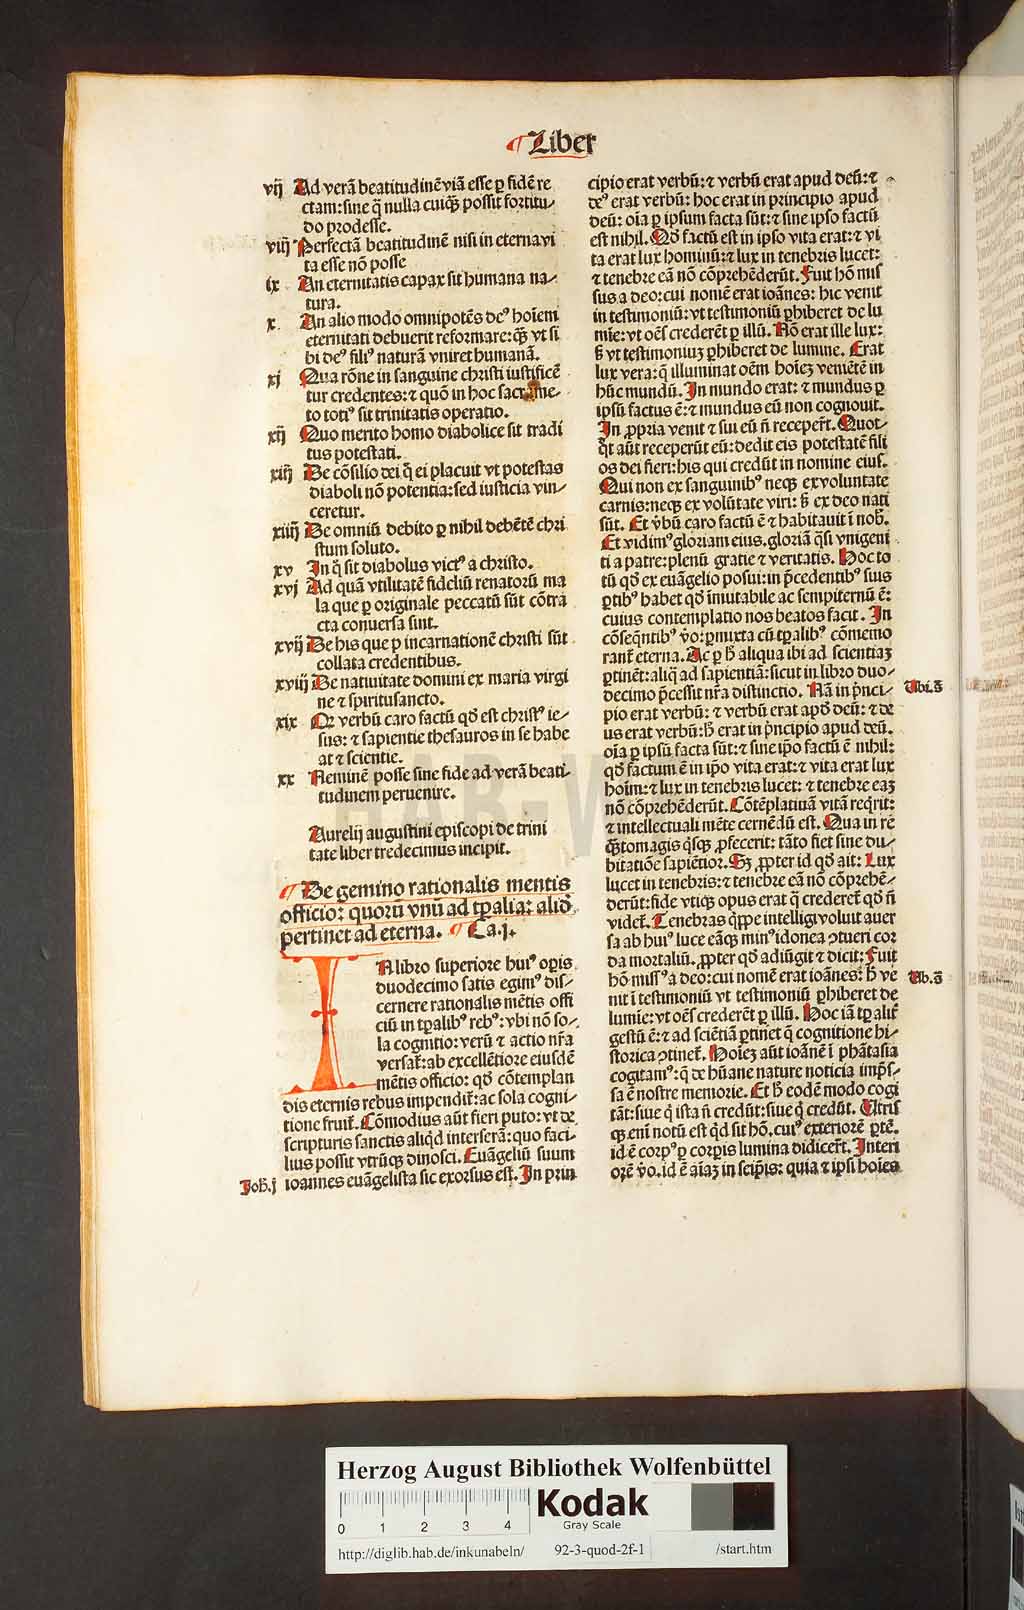 ¶ Liber
vij Ad verā beatitudinē viā esse ꝑ fidē re
ctam: sine q̄ nulla cuiqȝ possit fortitu⸗
do prodesse.
viij Perfectā beatitudinē nisi in eterna vi
ta esse nō posse
ix An eternitatis capax sit humana na⸗
tura.
x. An alio modo omnipotēs deꝰ hoiem
eternitati debuerit reformare: qȝ vt si
bi deꝰ filiꝰ naturā vniret humanā.
xj Qua rōne in sanguine christi iustificē
tur credentes: ⁊ quō in hoc sacrame⸗
to totiꝰ sit trinitatis operatio.
xij Quo merito homo diabolice sit tradi
tus potestati.
xiij De cōsilio dei q̄ ei placuit vt potestas
diaboli nō potentia: sed iusticia vin⸗
ceretur.
xiiij De omniū debito ꝑ nihil debētē chri
stum soluto.
xv In q̄ sit diabolus victꝰ a christo.
xvj Ad quā vtilitatē fideliū renatorū ma
la que ꝑ originale peccatū sūt cōtra
cta conuersa sint.
xvij De his que p incarnationē christi sūt
collata credentibus.
xviij De natiuitate domini ex maria virgi
ne ⁊ spiritusancto.
xix Qꝛ verbū caro factū qd̄ est christꝰ ie⸗
sus: ⁊ sapientie thesauros in se habe
at ⁊ scientie.
xx Neminē posse sine fide ad verā beati⸗
tudinem peruenire.
Aurelij augustini episcopi de trini
tate liber tredecimus incipit.
¶ De gemino rationalis mentis
officio: quorū vnū ad tꝑalia: aliđ
pertinet ad eterna. ¶ Ca.j.
IN libro superiore huiꝰ oꝑis
duodecimo satis egimꝰ dis⸗
cernere rationalis mētis offi
ciū in tꝑalibꝰ rebꝰ: vbi nō so⸗
la cognitio: verū ⁊ actio nr̄a
versat̄: ab excellētiore eiusdē
mētis officio: qd̄ cōtemplan
dis eternis rebus impendit̄: ac sola cogni⸗
tione fruit̄. Cōmodius aūt fieri puto: vt de
scripturis sanctis aliqd interserā: quo faci⸗
lius possit vtrūqȝ dinosci. Euāgeliū suum
Joh̄.j ioannes euāgelista sic exorsus est. In prin
cipio erat verbū: ⁊ verbū erat apud deū: ⁊
deꝰ erat verbū: hoc erat in principio apud
deū: oīa ꝑ ipsum facta sūt: ⁊ sine ipso factū
est nihil. Qđ factū est in ipso vita erat: ⁊ vi
ta erat lux hominū: ⁊ lux in tenebris lucet:
⁊ tenebre eā nō cōprehēderūt. Fuit hō mis
sus a deo: cui nomē erat ioānes: hic venit
in testimoniū: vt testimoniū ꝑhiberet de lu
mīe: vt oēs crederēt ꝑ illū. Nō erat ille lux:
ß vt testimoniuȝ ꝑhiberet de lumine. Erat
lux vera: q̄ illuminat oēm hoieȝ veniētē in
hūc mundū. In mundo erat: ⁊ mundus ꝑ
ipsū factus ē: ⁊ mundus eū non cognouit.
In ꝓpria venit ⁊ sui eū n̄ receper̄t. Quot⸗
q̄t aūt receperūt eū: dedit eis potestatē fili
os dei fieri: his qui credūt in nomine eiuſ.
Qui non ex sanguinibꝰ neqȝ ex voluntate
carnis: neqȝ ex volūtate viri: ß ex deo nati
sūt. Et v̄bū caro factū ē ⁊ habitauit ī nob̄.
Et vidimꝰ gloriam eius. gloriā q̄si vnigeni
ti a patre: plenū gratie ⁊ veritatis. Hoc to
tū qd̄ ex euāgelio posui: in p̄cedentibꝰ suis
ꝑtibꝰ habet qd̄ īmutabile ac sempiternū ē:
cuius contemplatio nos beatos facit. In
cōseq̄ntibꝰ v̄o: ꝑmixta cū tꝑalibꝰ cōmemo
rant̄ eterna. Ac ꝑ h̄ aliqua ibi ad scientiaȝ
ꝑtinēt: aliq̄ ad sapientiā: sicut in libro duo⸗
decimo p̄cessit nr̄a distinctio. Nā in p̄nci⸗ Vbi.s̄
pio erat verbū: ⁊ verbū erat apđ deū: ⁊ de
us erat verbū: h̄ erat in p̄ncipio apud deū.
oīa ꝑ ipsū facta sūt: ⁊ sine ip̄o factū ē nihil:
qd̄ factum ē in ip̄o vita erat: ⁊ vita erat lux
hoīm: ⁊ lux in tenebris lucet: ⁊ tenebre eaȝ
nō cōprehēderūt. Cōtēplatiuā vitā reqrit:
⁊ intellectuali mēte cernēdū est. Qua in re
qȝtomagis q̄sqȝ ꝓfecerit: tāto fiet sine du⸗
bitatiōe sapiētior. Sȝ ꝓpter id qd̄ ait: Lux
lucet in tenebris: ⁊ tenebre eā nō cōprehē⸗
derūt: fide vtiqȝ opus erat q̄ crederet̄ qd̄ n̄
videt̄. Tenebras q̄ppe intelligi voluit auer
sa ab huiꝰ luce eāqȝ minꝰ idonea ꝯtueri cor
da mortaliū. ꝓpter qd̄ adiūgit ⁊ dicit: Fuit
hō missꝰ a deo: cui nomē erat ioānes: h̄ ve Vb.s̄
nit ī testimoniū vt testimoniū ꝑhiberet de
lumīe: vt oēs crederēt ꝑ illū. Hoc iā tꝑalit̄
gestū ē: ⁊ ad sciētiā ꝑtinet q̄ cognitione hi⸗
storica ꝯtinet̄. Hoieȝ aūt ioānē ī phātasia
cogitamꝰ: q̄ de hūane nature noticia imp̄s⸗
sa ē nostre memorie. Et h̄ eodē modo cogi
tāt: siue q̄ ista n̄ credūt: siue q̄ credūt. Vtris
qȝ enī notū est qd sit hō, cuiꝰ exteriorē ꝑtē.
id ē corpꝰ ꝑ corꝑis lumina didicer̄t. Interi
orē v̄o. id ē aīaȝ in seip̄is: quia ⁊ ip̄i hoies
HAB-W
Herzog August Bibliothek Wolfenbüttel
0 1 2 3 4
Kodak
Gray Scale
http://diglib.hab.de/inkunabeln/ 92-3-quod-2f-1 /start.htm